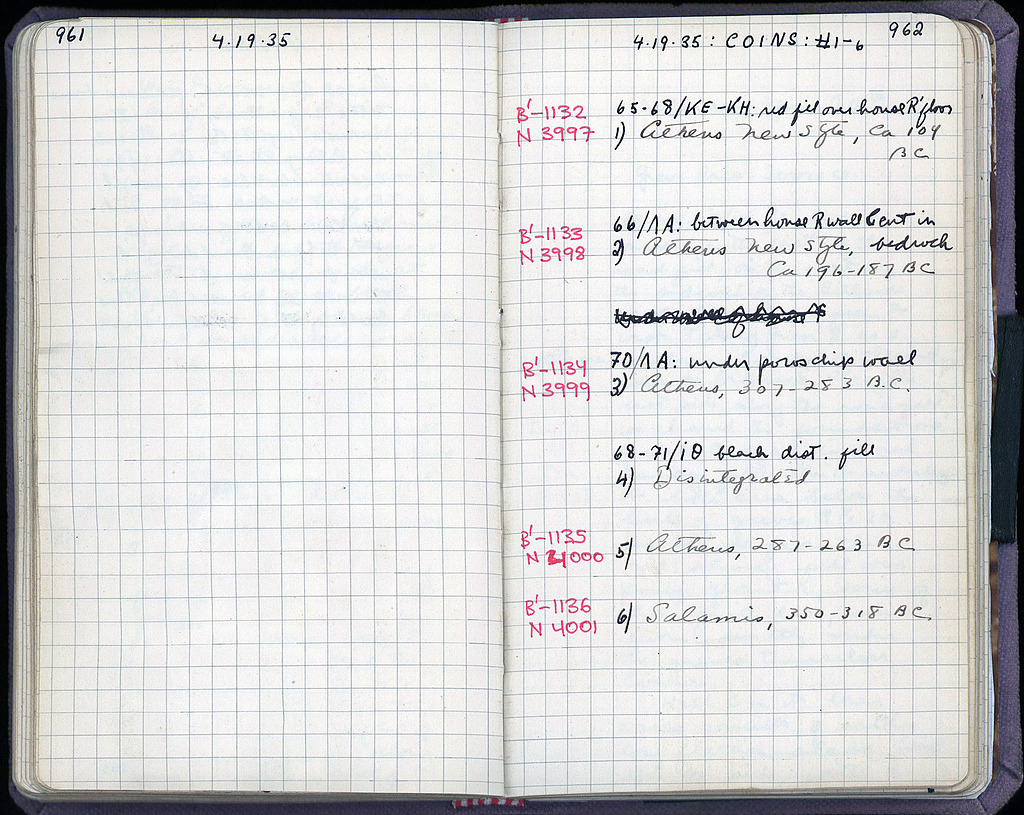 961
4·19·35
962
4·19·35 : COINS : #1-6
B'-1132
N 3997
65-68/KE-KH: red fill over house R' floor
1) Athens New Style, Ca 104
BC
B'-1133
N 3998
66/ΛA: between house R wall & cut in
2) Athens New Style, bedrock
Ca 196-187 BC
B'-1134
N 3999
70/ΛA: under poros chip wall
3) Athens, 307-283 B.C.
68-71/iΘ black dist. fill
4) Disintegrated
B'-1135
N 4000
5) Athens, 287-263 BC
B'-1136
N 4001
6) Salamis, 350-318 BC